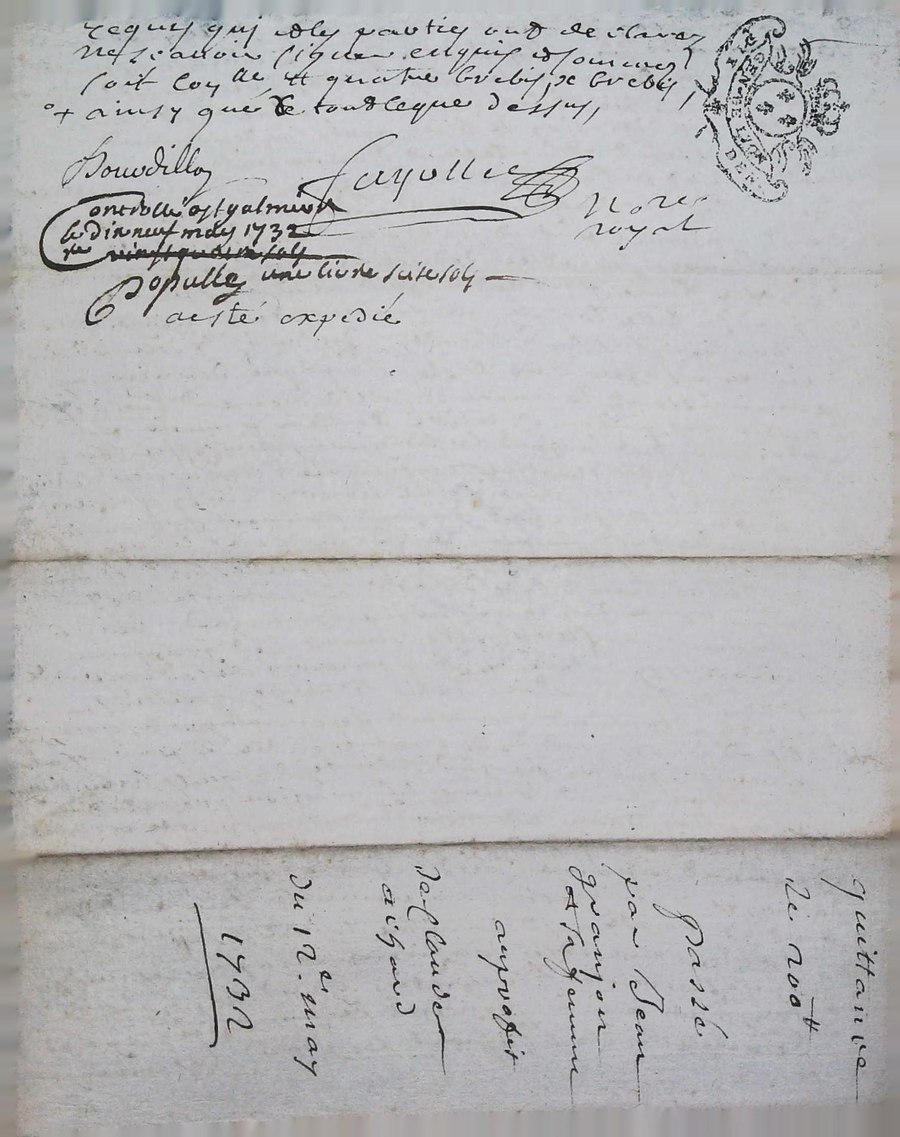 requis qui et les parties ont declarez
ne scavoir signer enquis et sommez
soit et quatre brebis et brebis,
+ ainsy que le dessus,
Bourdillon
Fayolle
Nore
royal
Controllé a St galmier
le dixneuf may 1732
vingt quatre sols
Popullez une livre seise sols
a esté expedié
quittance
de 200tt
Passé
par Jean
granjon
et sa femme
au profit
de Claude
aihard
du 12e. may
1732